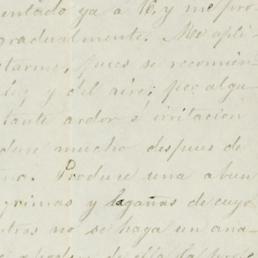 entado ya á 16, y me pro
gradualmente. Me apli
tarme, pues se recomien
luz y del aire; por algu
tante ardor é irritacion
dure mucho despues de
no. Produce una abun
grimas y lagañas de cuyo
tras no se haga un ana